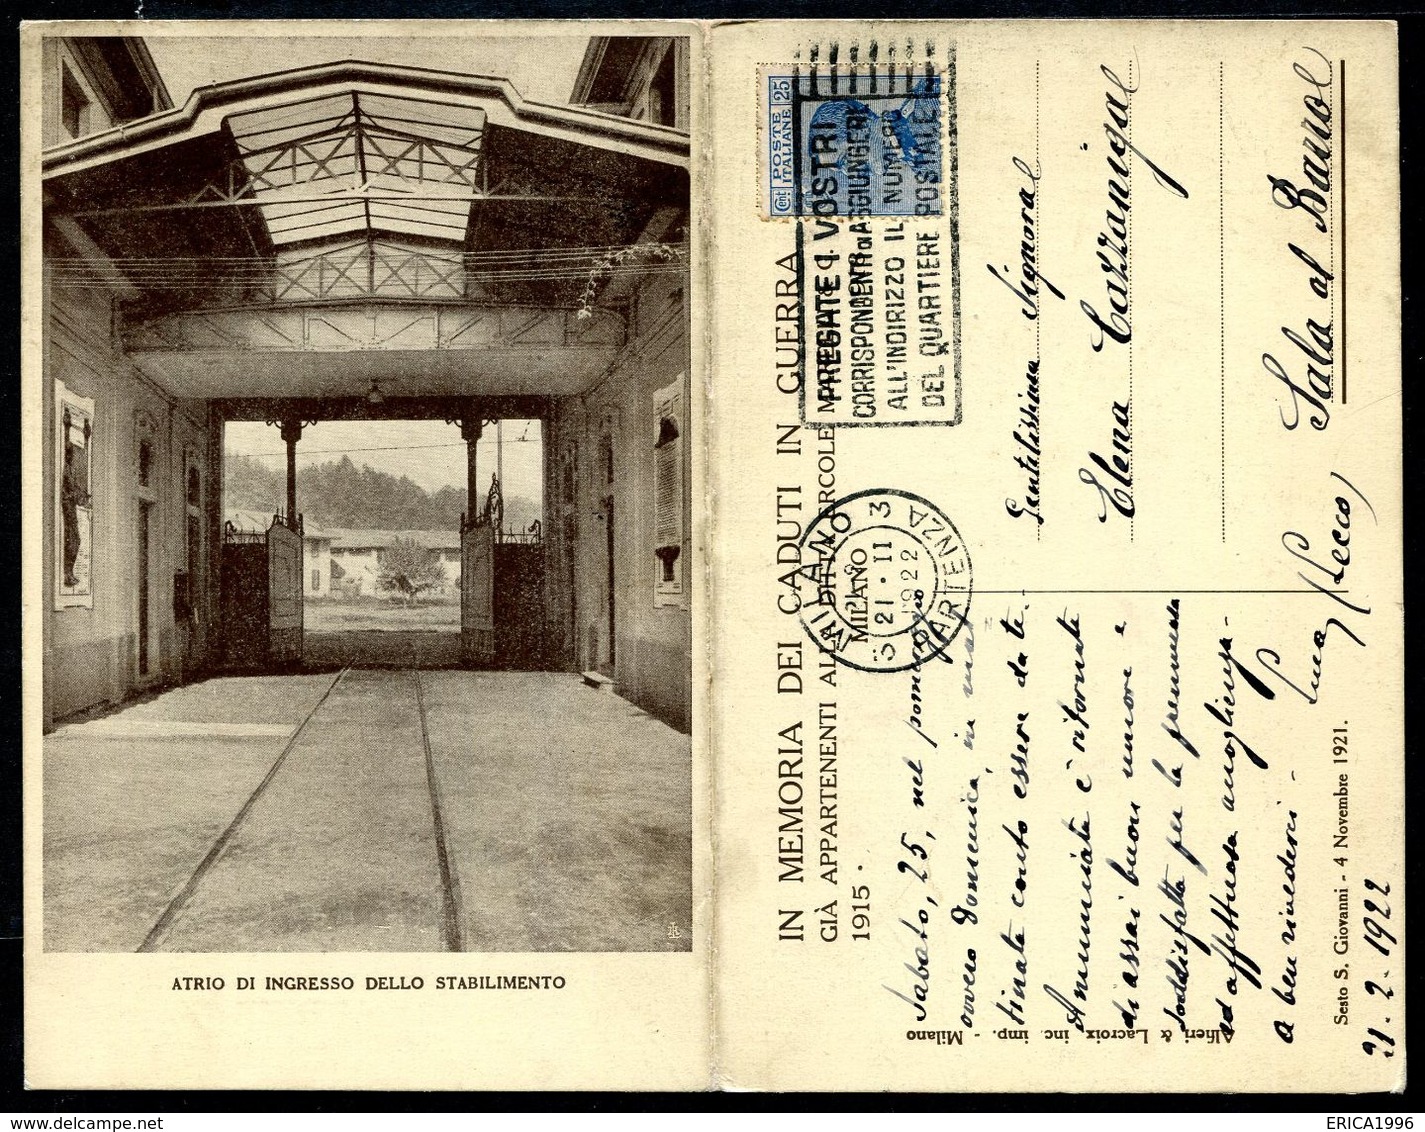 ATRIO DI INGRESSO DELLO STABILIMENTO
IN MEMORIA DEI CADUTI IN GUERRA
GIÀ APPARTENENTI ALLA DITTA ERCOLE MARELLI & C.
MILANO
1915
Cent. POSTE ITALIANE 25
PREGATE I VOSTRI
CORRISPONDENTI di AGGIUNGERE
ALL'INDIRIZZO IL NUMERO
DEL QUARTIERE POSTALE
MILANO 3
21 · II
1922
3 PARTENZA
Gentilissima Signora
Elena Cazzaniga
Sala al Barro
(Lecco)
Sabato, 25, nel pomeriggio
ovvero Domenica, in mat-
tinata conto essere da te.
Annunciate è riformate
di assai buon umore e
soddisfatta per la premurosa
ed affettuosa accoglienza -
a ben rivederci -
Sesto S. Giovanni - 4 Novembre 1921.
21 · 2 · 1922
Alfieri & Lacroix inc. imp. - Milano
ERICA1996